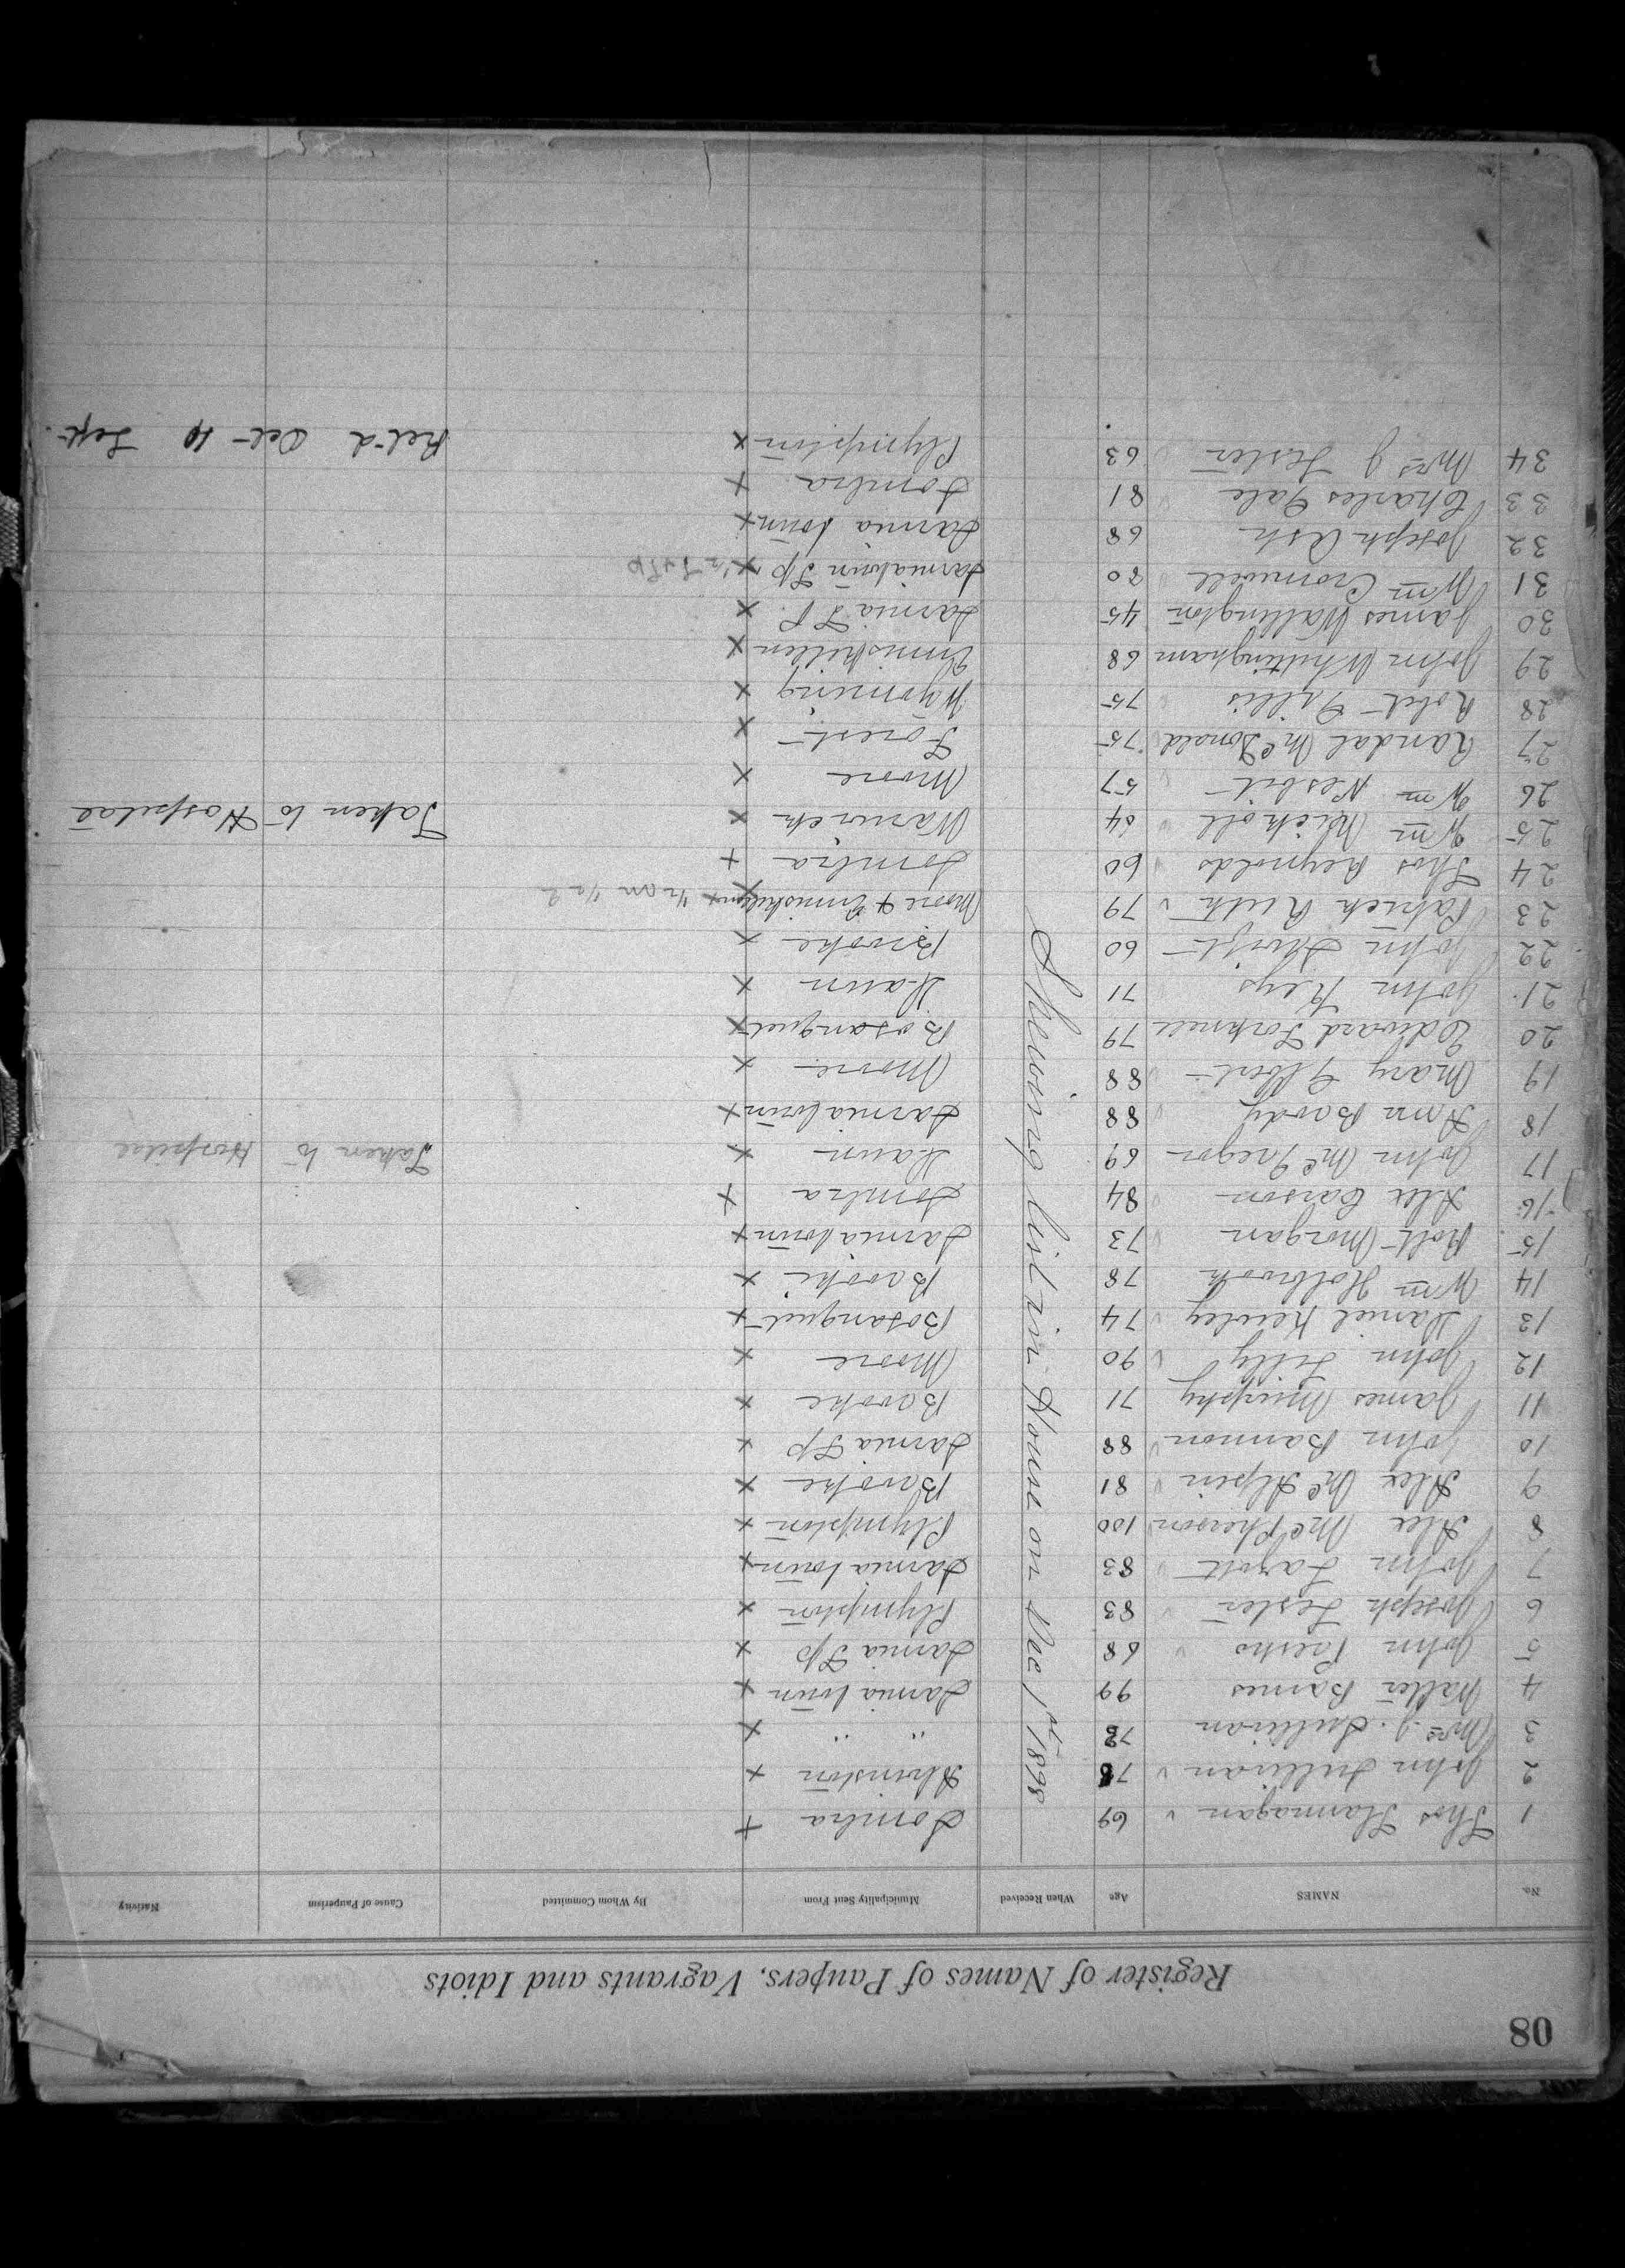 80
Register of Names of Paupers, Vagrants and Idiots
No. NAMES Age When Received Municipality Sent From By Whom Committed Cause of Pauperism Nativity
Shewing list in House on Dec 1st 1898
1 Thos Hannagan 69 Sombra +
2 John Sullivan 78 Alvinston x
3 Mrs J. Sullivan 78 " " x
4 Walter Barnes 99 Sarnia town x
5 John 68 Sarnia Tp x
6 Joseph Lester 83 Plympton x
7 John 83 Sarnia town x
8 Alex McPherson 100 Plympton x
9 Alex McAlpin 81 Brooke x
10 John Bannon 88 Sarnia Tp x
11 James Murphy 71 Brooke x
12 John Lilly 90 Moore x
13 Daniel 74 Bosanquet x
14 Wm Holbrook 78 Brooke x
15 Robt Morgan 73 Sarnia town x
16 Alex Carson 84 Sombra +
17 John McGregor 69 Dawn x Taken to Hospital
18 Ann Brody 88 Sarnia town x
19 Mary 88 Moore x
20 Edward 79 Bosanquet x
21 John Keys 71 Dawn x
22 John Swift 60 Brooke x
23 Patrick 79 Moore & Enniskillen x 1/2 m 1/2 E
24 Thos Reynolds 60 Sombra +
25 Wm Nicholl 64 Warwick x Taken to Hospital
26 Wm Nesbit 57 Moore x
27 Randal McDonald 75 Forest x
28 Robt Gillis 75 Wyoming x
29 John Whittingham 68 Enniskillen x
30 James Wallington 45 Sarnia T P. x
31 Wm Cromwell 80 Sarnia town Tp x
32 Joseph Ash 68 Sarnia town x
33 Charles Gale 81 Sombra +
34 Mrs J Lester 63 Plympton x Ret-d Dec 10